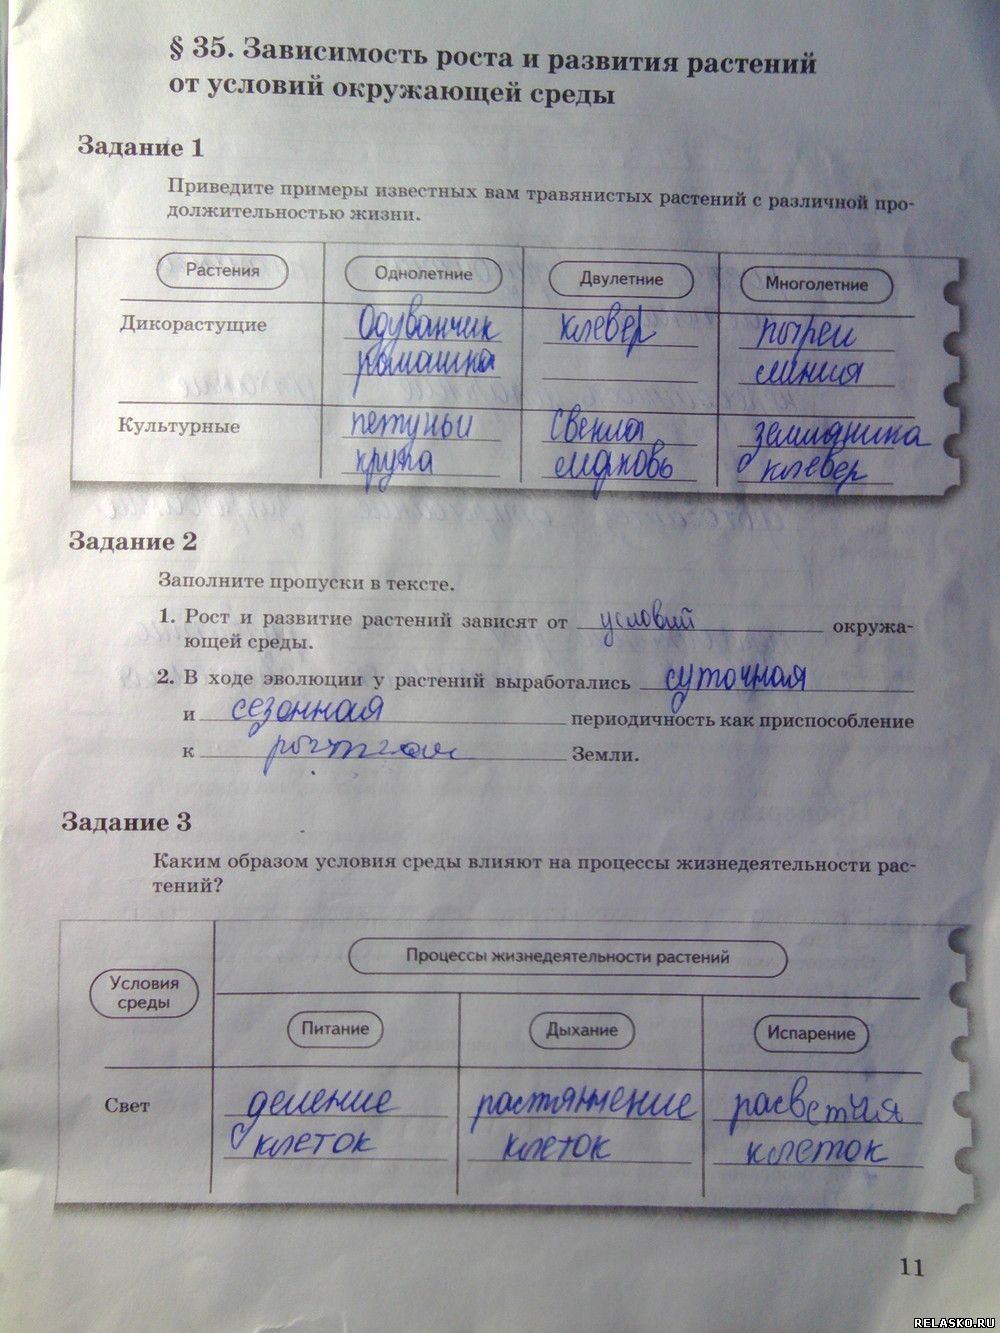 § 35. Зависимость роста и развития растений
от условий окружающей среды
Задание 1
Приведите примеры известных вам травянистых растений с различной про-
должительностью жизни.
Растения Однолетние Двулетние Многолетние
Дикорастущие Одуванчик клевер пырей
ромашка
Культурные петуньи Свекла земляника
крупа морковь клевер
Задание 2
Заполните пропуски в тексте.
1. Рост и развитие растений зависят от условий окружа-
ющей среды.
2. В ходе эволюции у растений выработались суточная
и сезонная периодичность как приспособление
к Земли.
Задание 3
Каким образом условия среды влияют на процессы жизнедеятельности рас-
тений?
Процессы жизнедеятельности растений
Условия
среды
Питание Дыхание Испарение
Свет деление растяжение
клеток клеток клеток
11
RELASKO.RU